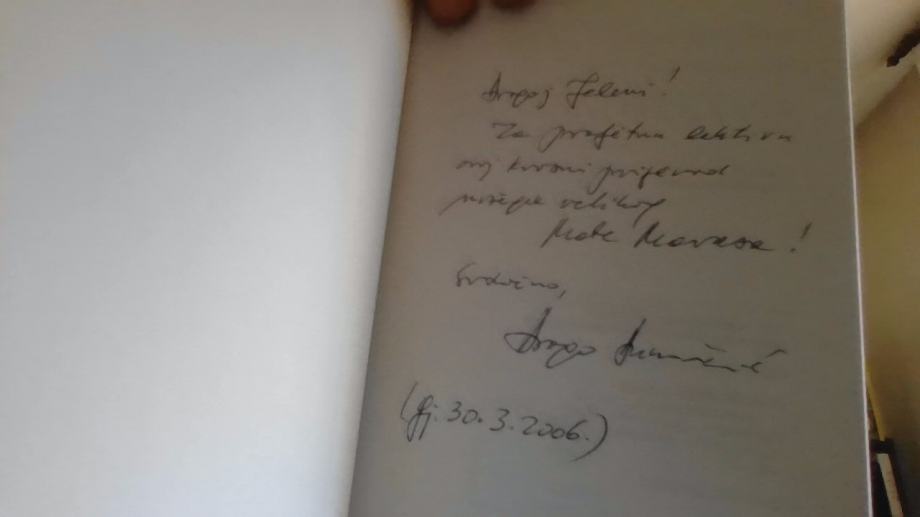 Dragoj Jeleni!
Za prođetnu lektiru
ovaj krvavi prijevod
našega velikog
Mate Marasa!
Srdačno,
Drago
(Rj. 30.3.2006.)